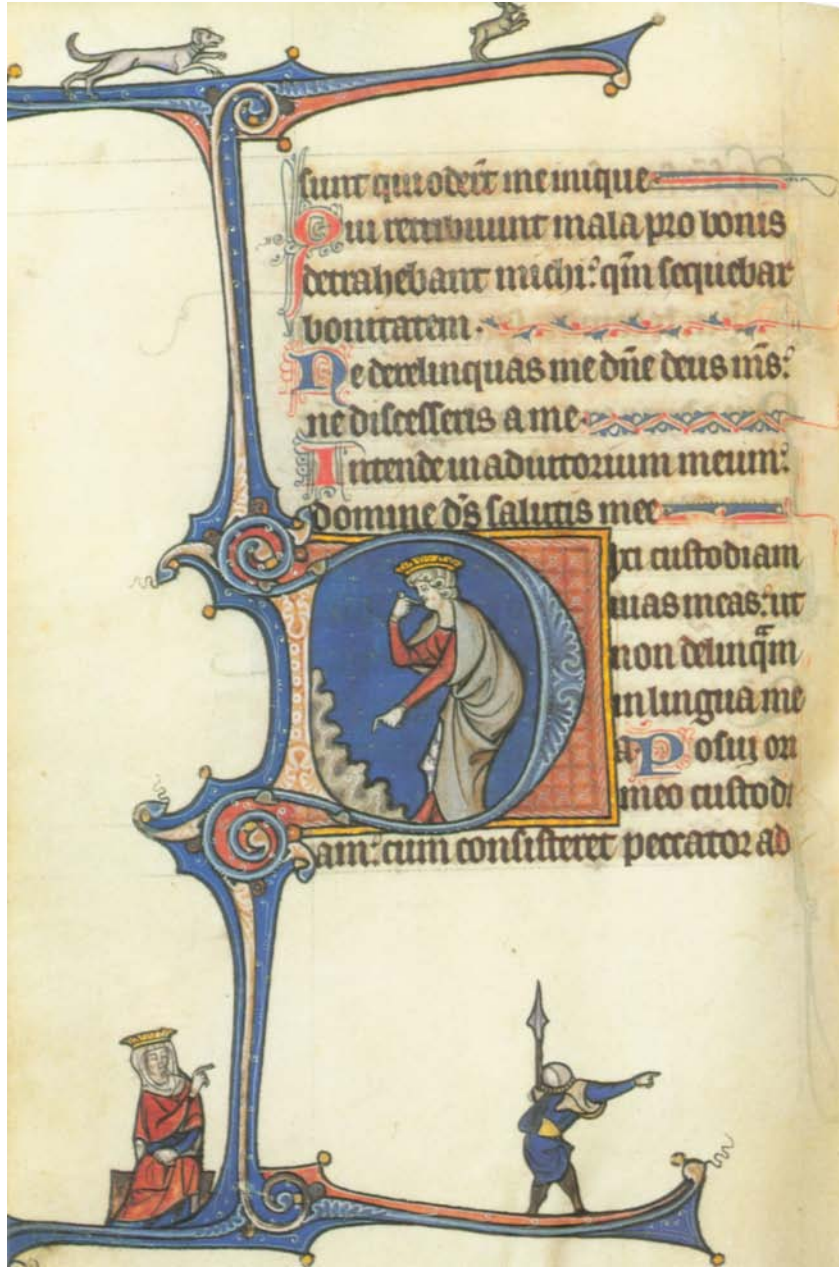 sunt qui oder̅t me inique
Qui retribuunt mala pro bonis
detrahebant michi: qm̅ sequebar
bonitatem.
Ne derelinquas me dn̅e deus ms̅:
ne discesseris a me.
Intende in adiutorium meum:
domine ds̅ salutis mee
Dixi custodiam
uias meas: ut
non delinqam
in lingua me
a. Posui ori
meo custodi
am: cum consisteret peccator ad